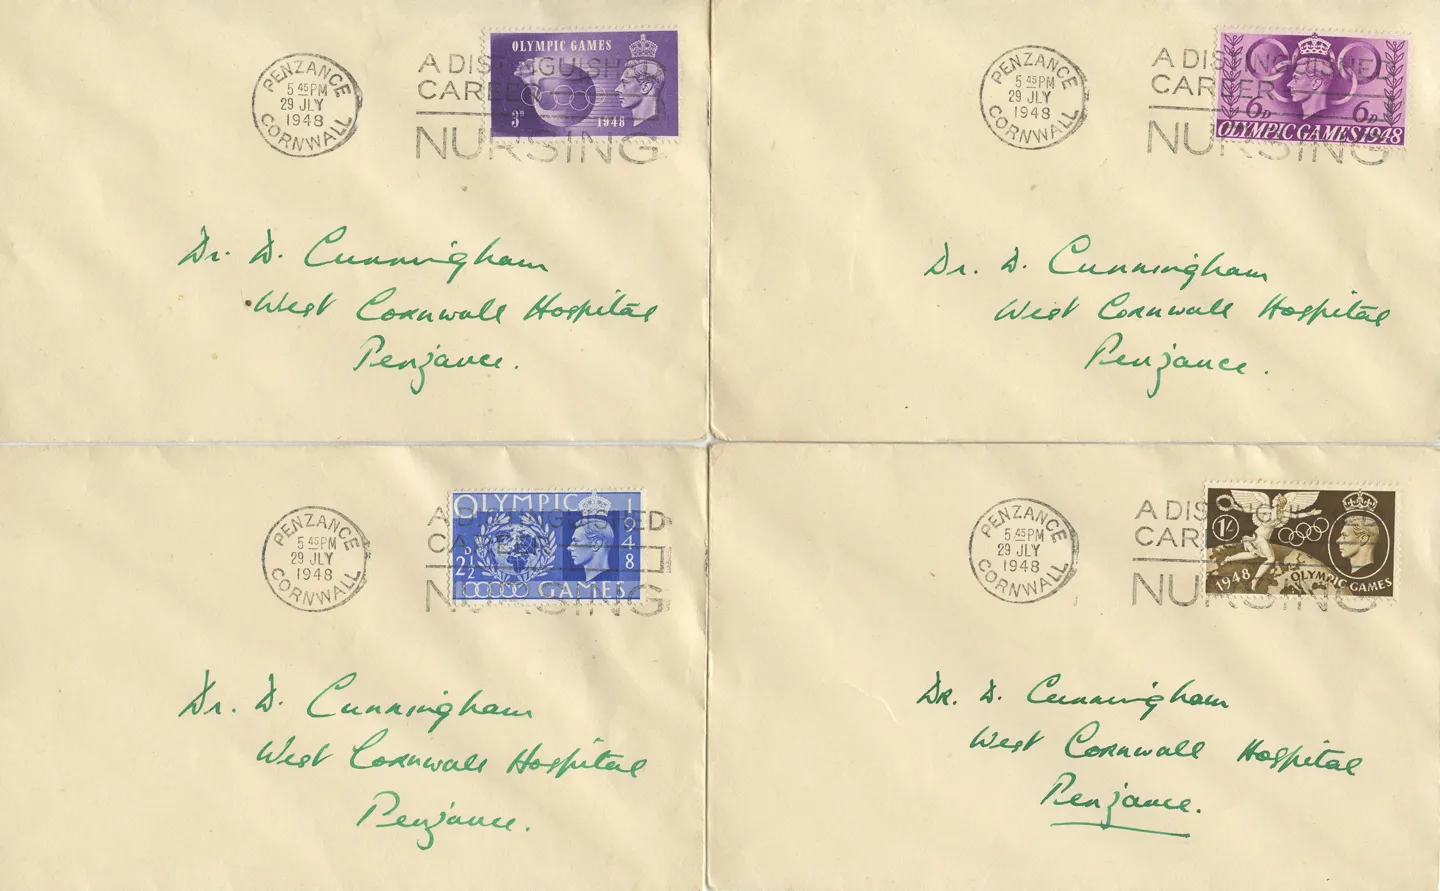 PENZANCE
5 45 PM
29 JLY
1948
CORNWALL
A DISTINGUISHED
CAREER
NURSING
OLYMPIC GAMES
3D
1948
Dr. D. Cunningham
West Cornwall Hospital
Penzance.
PENZANCE
5 45 PM
29 JLY
1948
CORNWALL
A DISTINGUISHED
CAREER
NURSING
6D 6D
OLYMPIC GAMES 1948
Dr. D. Cunningham
West Cornwall Hospital
Penzance.
PENZANCE
5 45 PM
29 JLY
1948
CORNWALL
A DISTINGUISHED
CAREER
NURSING
OLYMPIC
1948
2½D
GAMES
Dr. D. Cunningham
West Cornwall Hospital
Penzance.
PENZANCE
5 45 PM
29 JLY
1948
CORNWALL
A DISTINGUISHED
CAREER
NURSING
1/-
1948 OLYMPIC GAMES
DR. D. Cunningham
West Cornwall Hospital
Penzance.